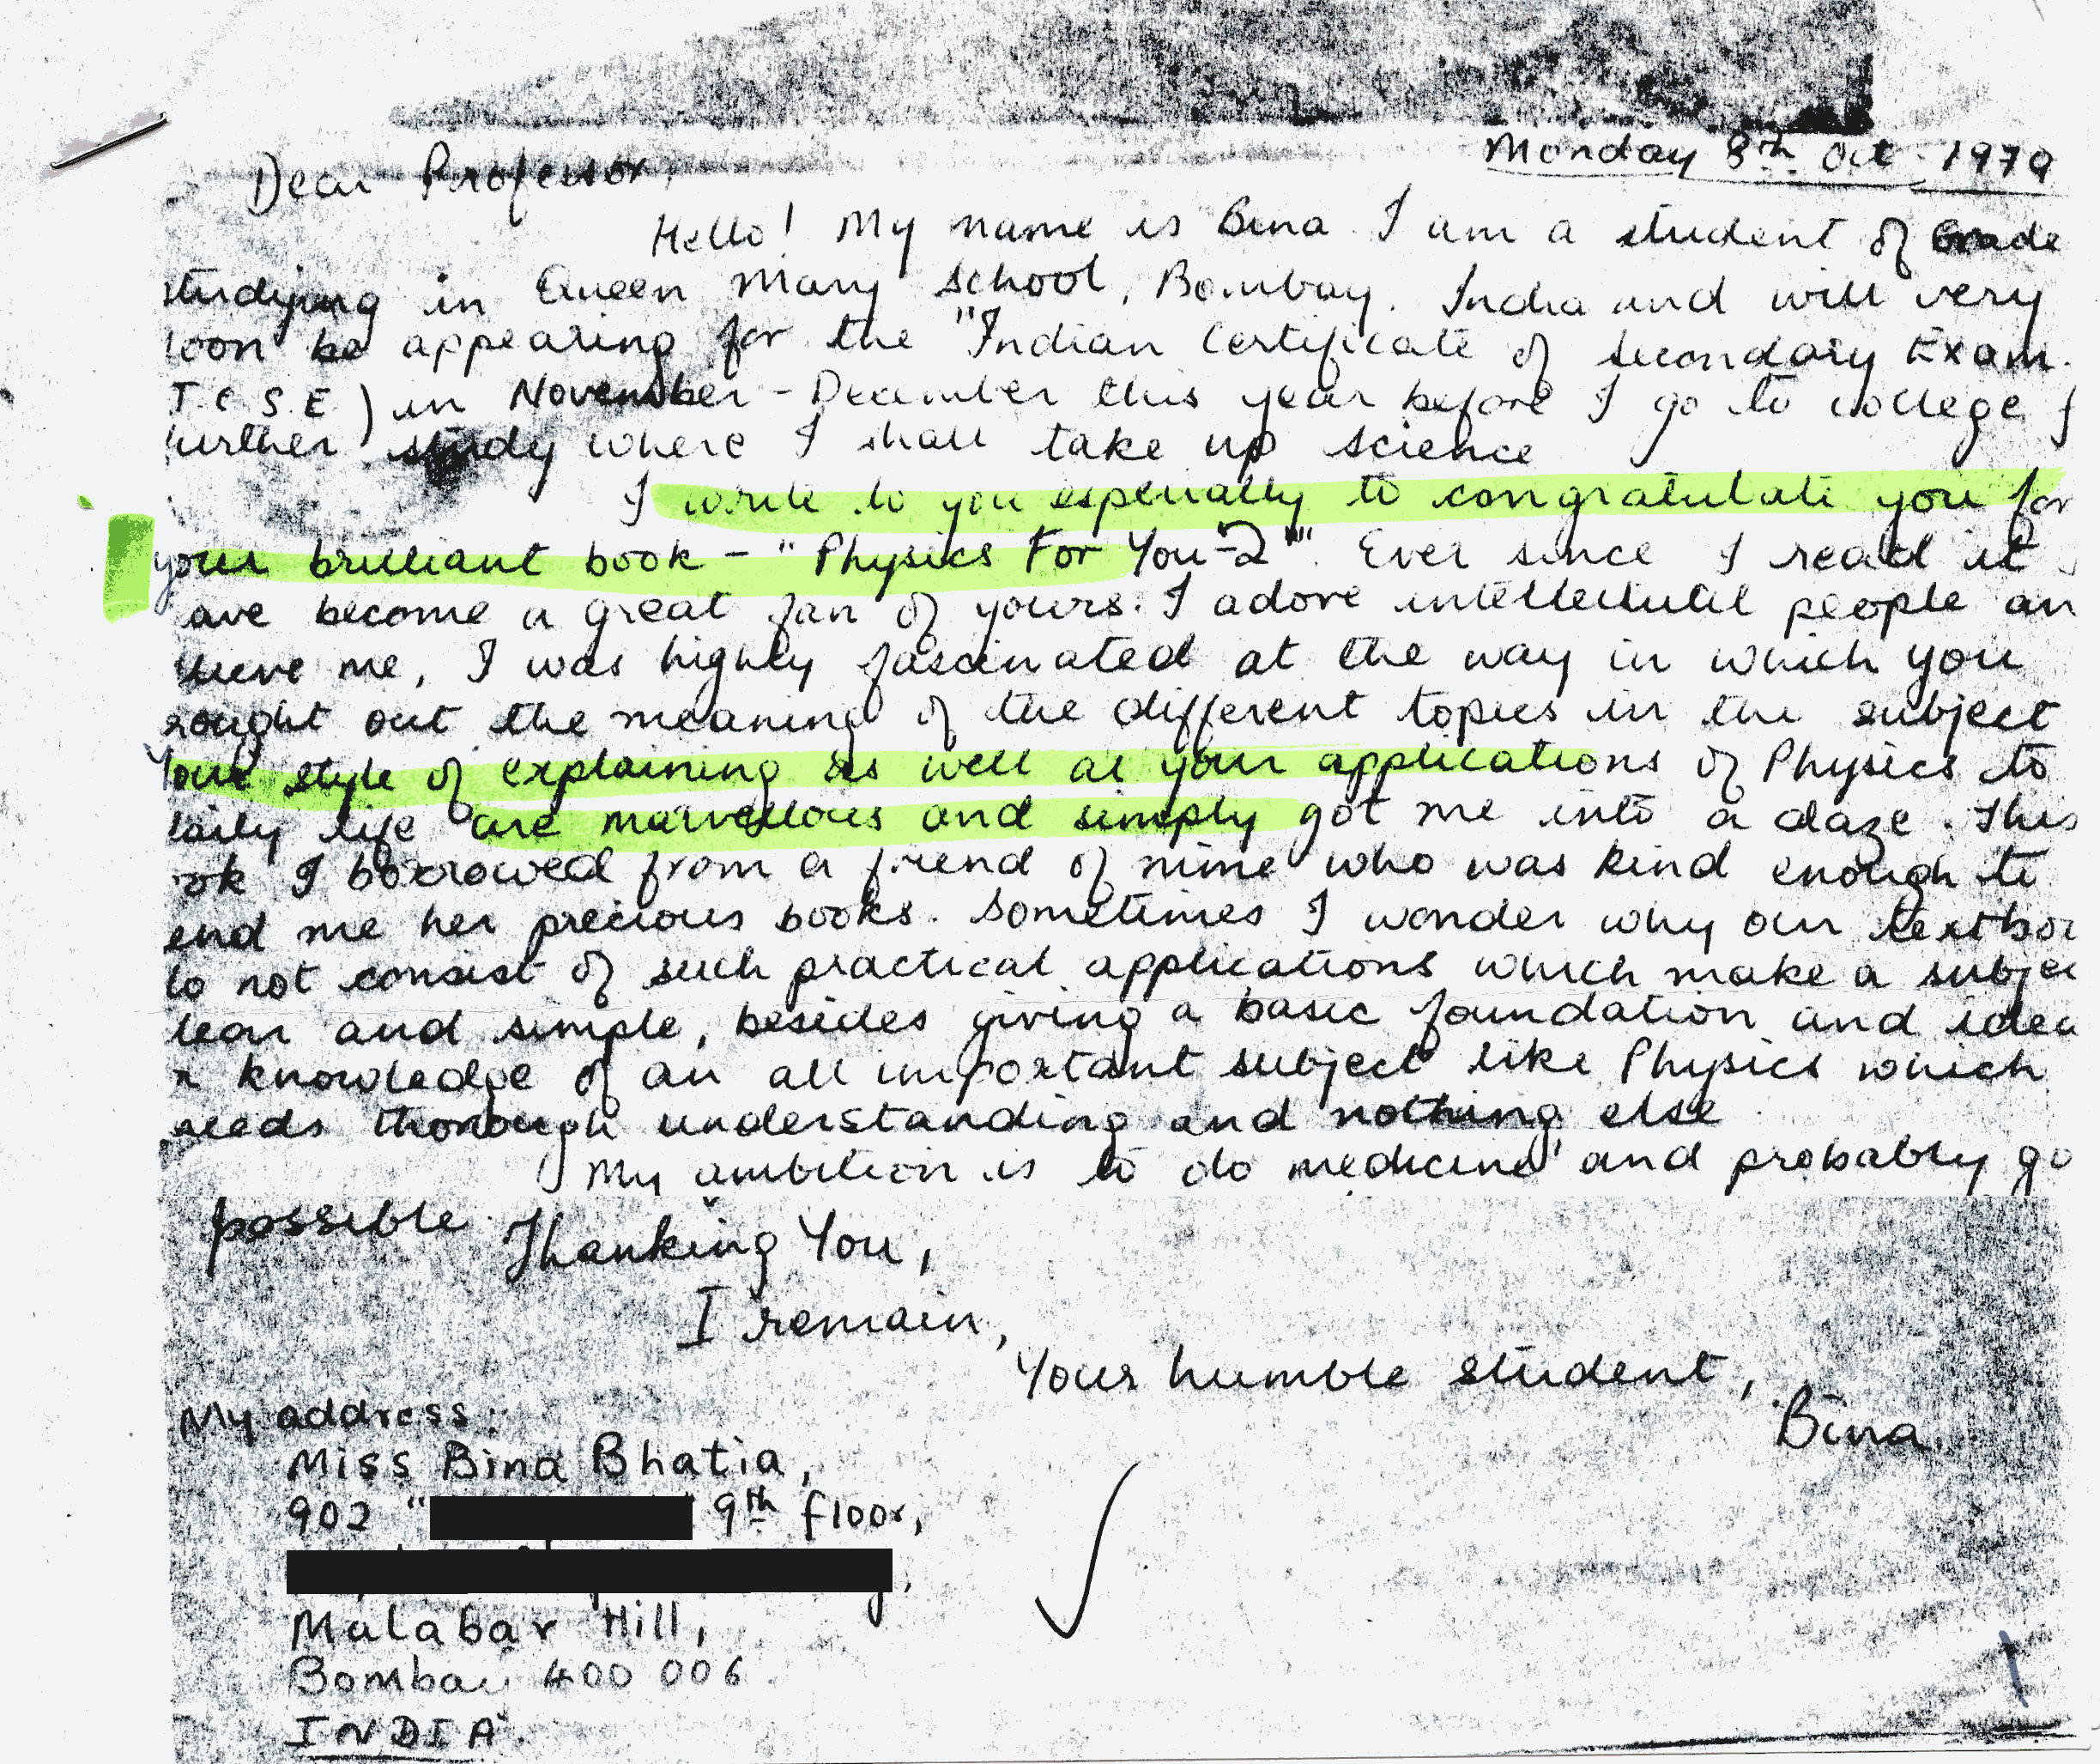 Monday 8th Oct 1979
Dear Professor,
Hello! My name is Bina I am a student of Grade
studying in Queen Mary School, Bombay. India and will very
soon be appearing for the "Indian Certificate of Secondary Exam.
I.C.S.E) in November - December this year before I go to college f
urther study where I shall take up science
I write to you especially to congratulate you for
your brilliant book - "Physics For You-2"". Ever since I read it
ave become a great fan of yours. I adore intellectual people an
lieve me, I was highly fascinated at the way in which you
rought out the meaning of the different topics in the subject
Your style of explaining as well as your applications of Physics to
daily life are marvellous and simply got me into a daze. This
ook I borrowed from a friend of mine who was kind enough to
lend me her precious books. Sometimes I wonder why our textboo
do not consist of such practical applications which make a subjec
lear and simple, besides giving a basic foundation and idea
r knowledge of an all important subject like Physics which
needs thorough understanding and nothing else
My ambition is to do medicine and probably go
possible. Thanking You,
I remain,
Your humble student,
Bina.
My address:
Miss Bina Bhatia,
902 " 9th floor,
Malabar Hill,
Bombay 400 006
INDIA.